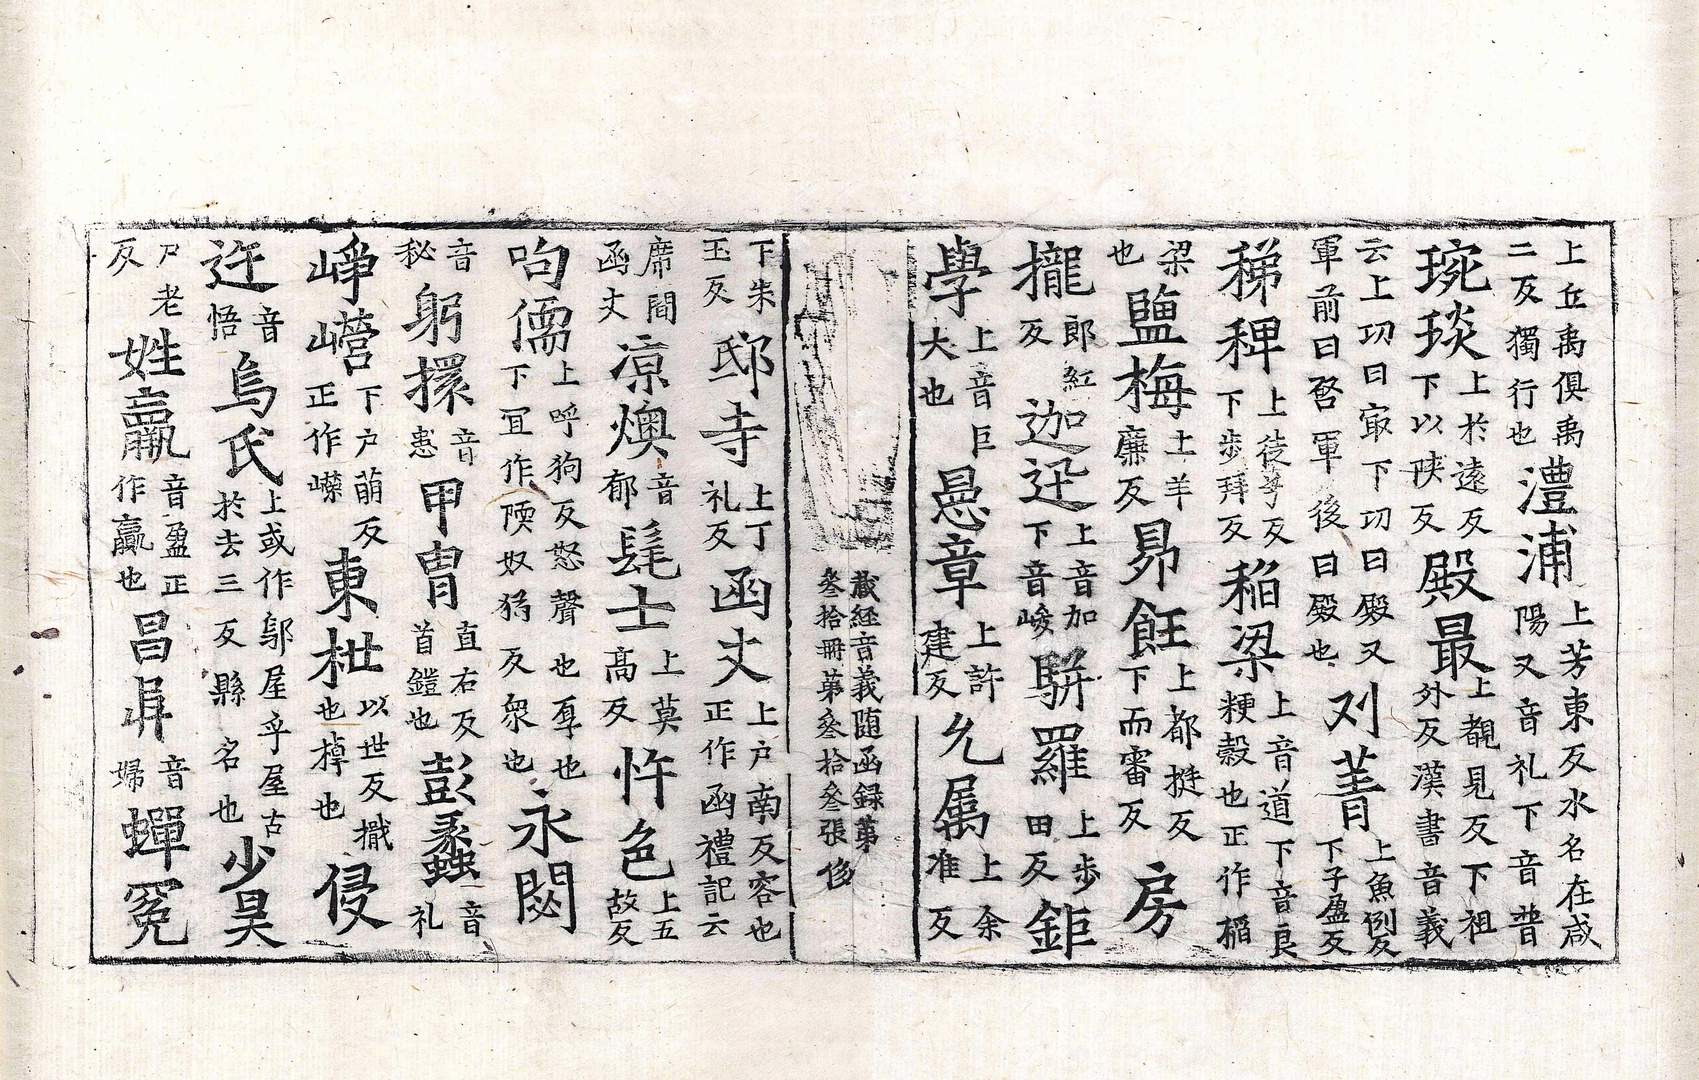 上丘禹俱禹二反獨行也澧浦上芳東反水名在咸陽又音礼下音普
琬琰上於遠反下以陝反殿最上覩見反下祖外反漢書音義
云上功曰冣下功曰殿又軍前曰啓軍後曰殿也刈菁上魚例反下子盈反
稊稗上徒兮反下步拜反稲梁上音道下音良粳榖也正作稲
梁也鹽梅上羊廉反昴飪上都挺反下而審反房
攏郎紅反迦迊上音加下音峻駢羅上步田反鉅
學上音巨大也㬎章上許建反允属上余准反
藏経音義随函録第叁拾冊第叁拾叁張
下朱玉反邸寺上丁礼反函丈上户南反容也正作函禮記云
席間函丈凉燠音郁髦士上莫高反忤色上五故反
呴儒上呼狗反怒聲也㫗也下冝作㨎奴豿反衆也永閟
音秘躬擐音患甲胄直右反首鎧也彭蠡音礼
崢嶸下户萠反正作嶸東枻以世反檝也棹也侵
迕音悟烏氏上或作鄔屋乎屋古於去三反縣名也少昊
尸老反姓羸音盈正作羸也昌㠯音婦蟬冕